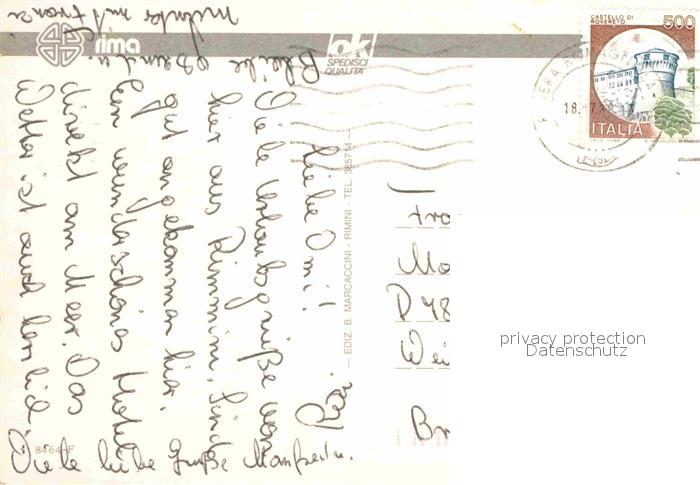 rima
ok
SPEDISCI
QUALITA'
CASTELLO DI
ROVERETO
500
ITALIA
— EDIZ. B. MARCACCINI - RIMINI - TEL. 385714 —
Liebe Omi!
Viele Urlaubsgrüße von
hier aus Rimmini. Sind
gut angekommen hier.
Ein wunderschönes Hotel
direkt am Meer. Das
Wetter ist auch herrlich.
Bleibe
Viele liebe Grüße Manfred u.
Fra
D 48
Wei
8464-F
privacy protection
Datenschutz